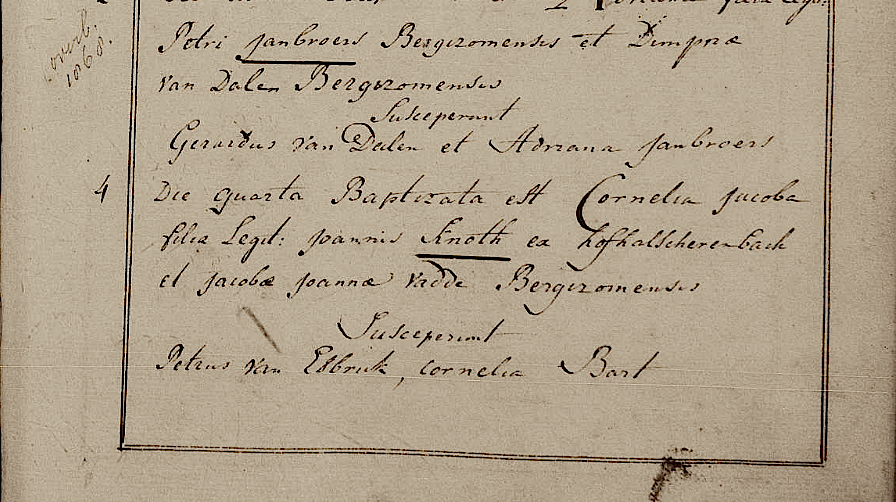 Petri Janbroers Bergizomensis et Dimpnæ
van Dalen Bergizomensis
Susceperunt
Gerardus van Dalen et Adriana Janbroers
4 Die quarta Baptizata est Cornelia Jacoba
filia Legit: Joannis Knoth ex hofhalscherenbach
et Jacobæ Joannæ vadde Bergizomensis
Susceperunt
Petrus van Esbruk, Cornelia Bart